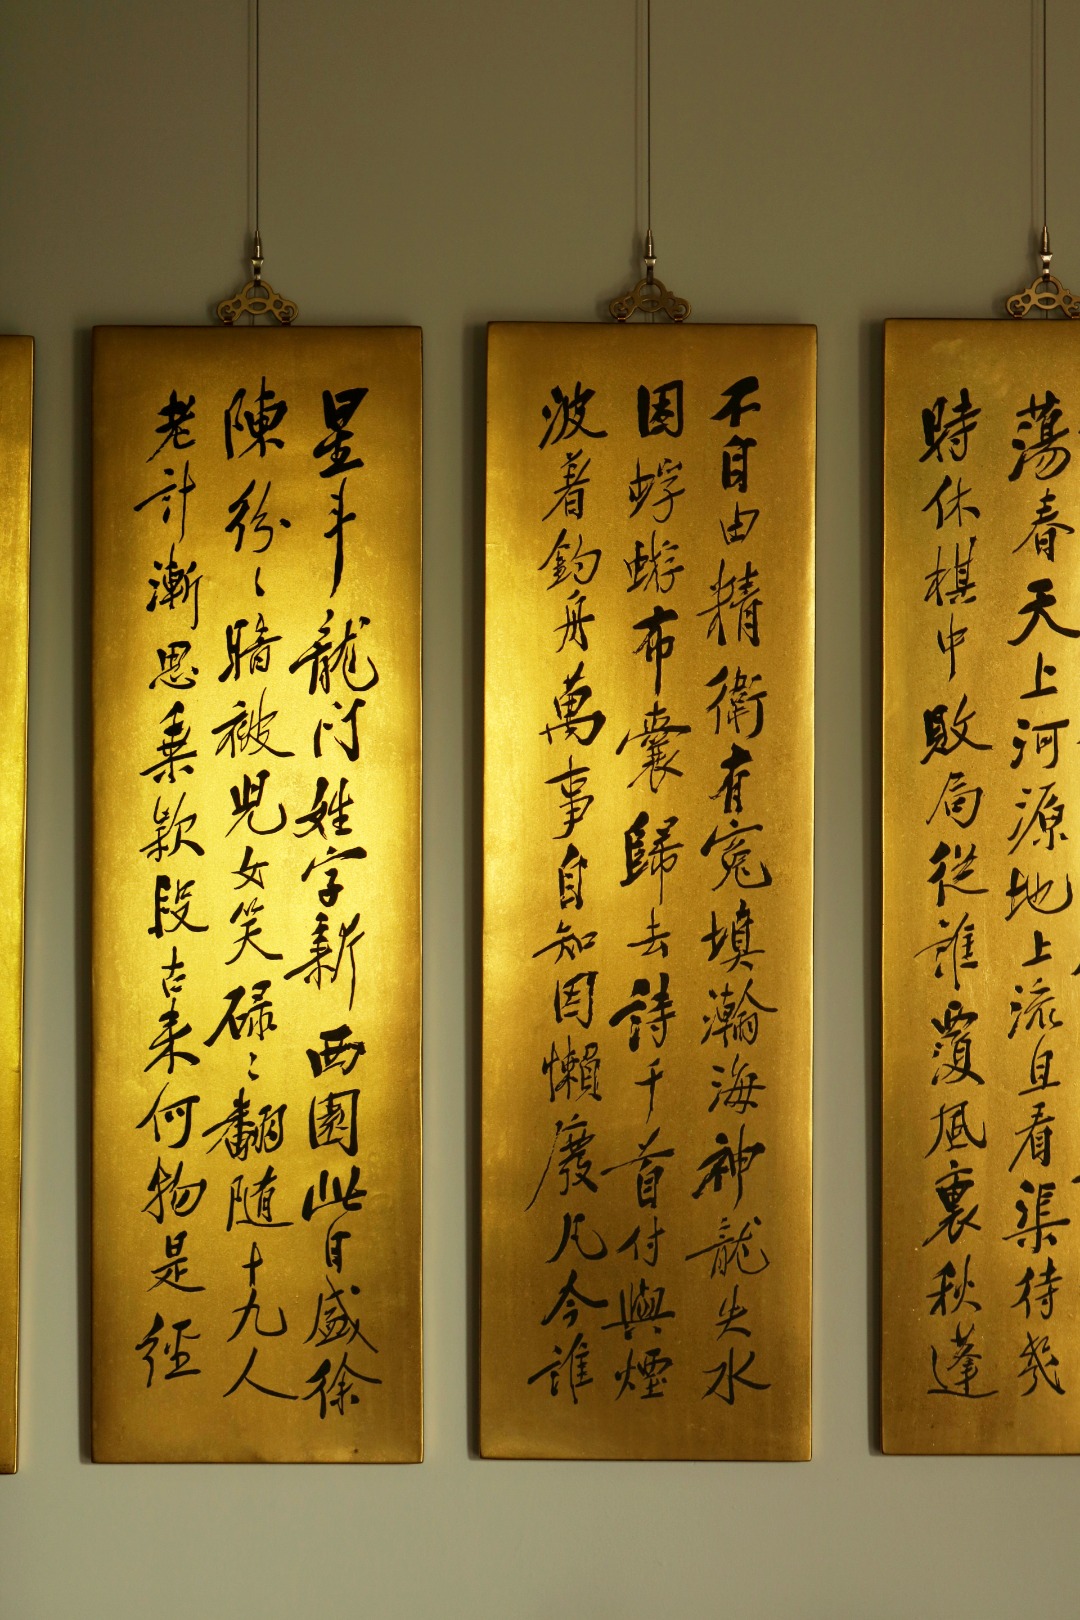 蕩春天上河源地上流且看渠待幾
時休棋中敗局從誰覆風裏秋蓬
不自由精衛有冤填瀚海神龍失水
困蜉蝣布囊歸去詩千首付與煙
波着釣舟萬事自知因懶廢凡今誰
星斗龍門姓字新西園此日盛徐
陳紛〻暗被兒女笑碌〻翻隨十九人
老計漸思乘款段古來何物是經